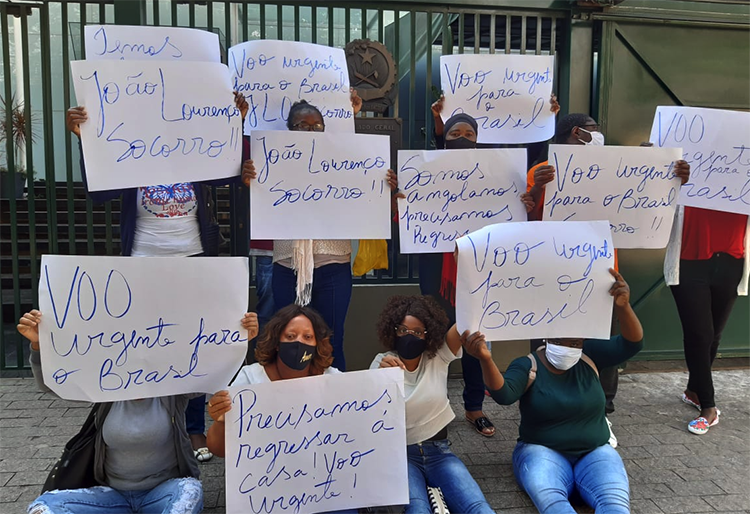 Temos
João Lourenço
Socorro !!
Voo urgente
para o Brasil
João Lourenço
Socorro !!
Voo urgente
para o
Brasil
Somos
angolanos
precisamos
Regress
Voo urgente
para o Brasil
Socorro !!
VOO
urgente
para o
Brasil
Love
VOO
urgente para
o Brasil
Precisamos
regressar á
casa! Voo
urgente!
Voo urgente
para o
Brasil